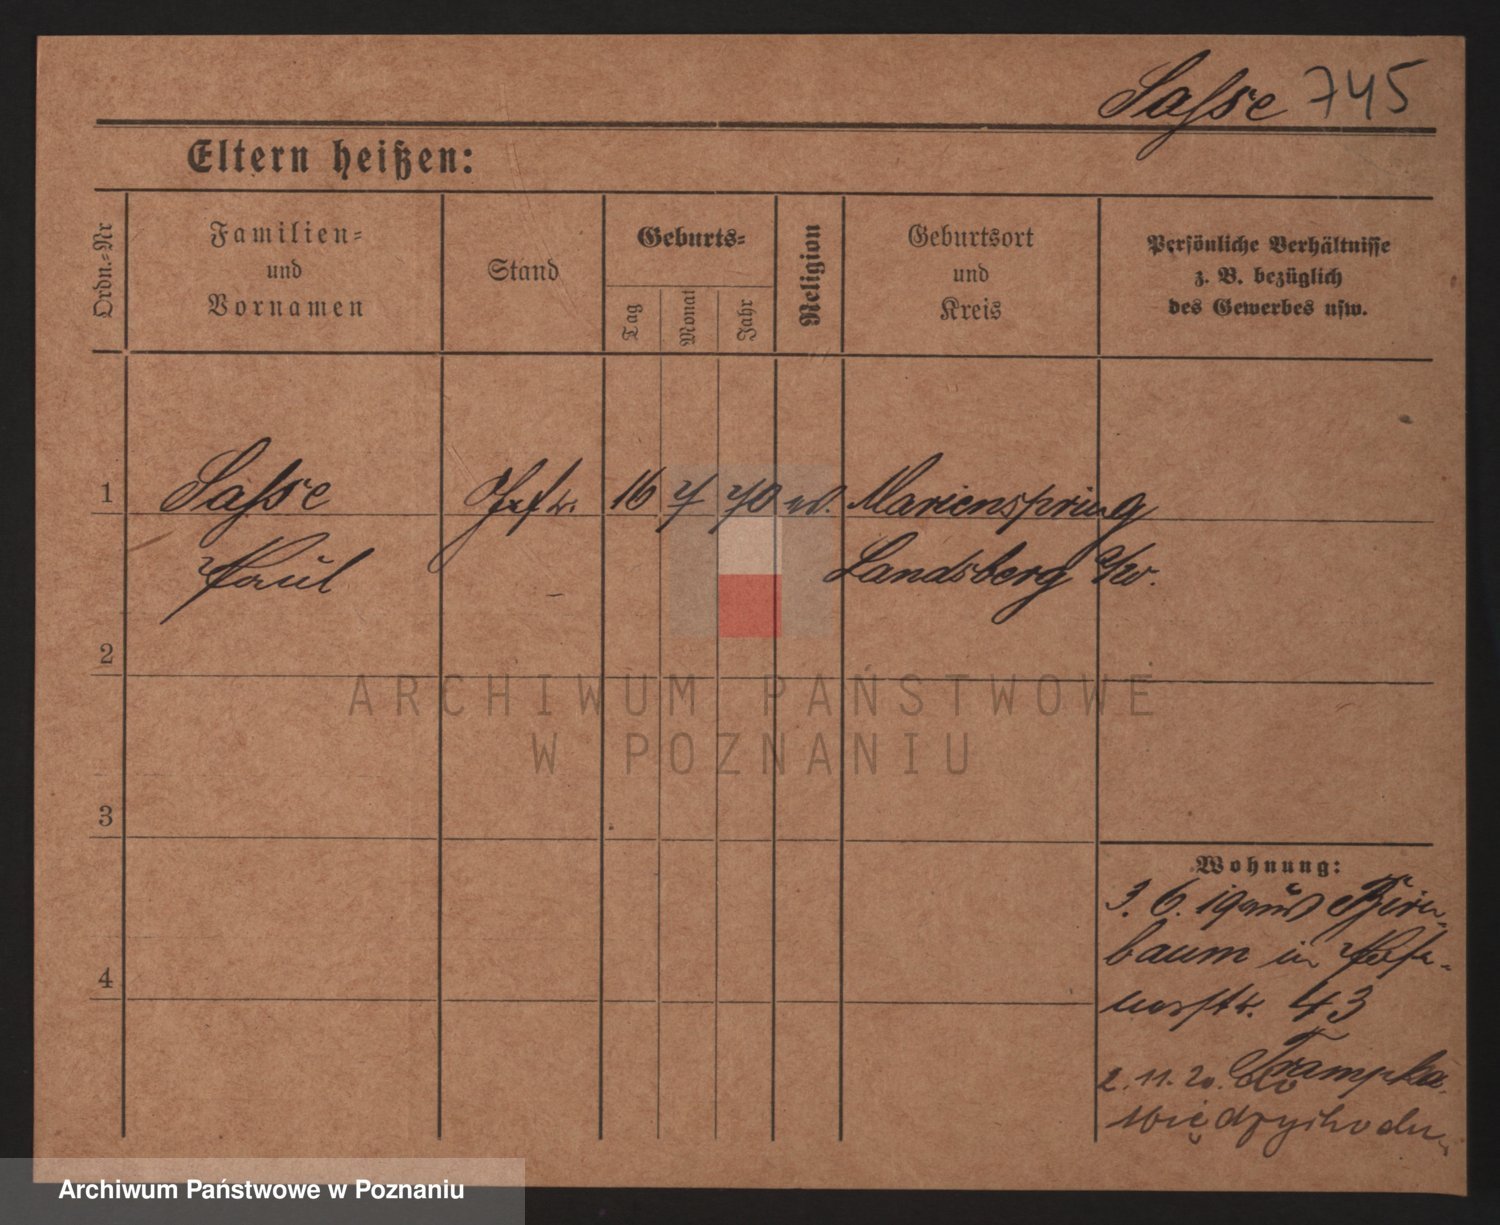 Sasse 745
Eltern heißen:
Ordn.-Nr
Familien-
und
Vornamen
Stand
Geburts-
Tag
Monat
Jahr
Religion
Geburtsort
und
Kreis
Persönliche Verhältnisse
z. B. bezüglich
des Gewerbes usw.
1 Sasse 16 7 70 ev. Marienspring
Paul Landsberg a/w.
2
3
4
Wohnung:
3. 6. 19 aus Birn-
baum in
43
Trampka
2. 11. 20. do
Międzychodu
ARCHIWUM PAŃSTWOWE
W POZNANIU
Archiwum Państwowe w Poznaniu